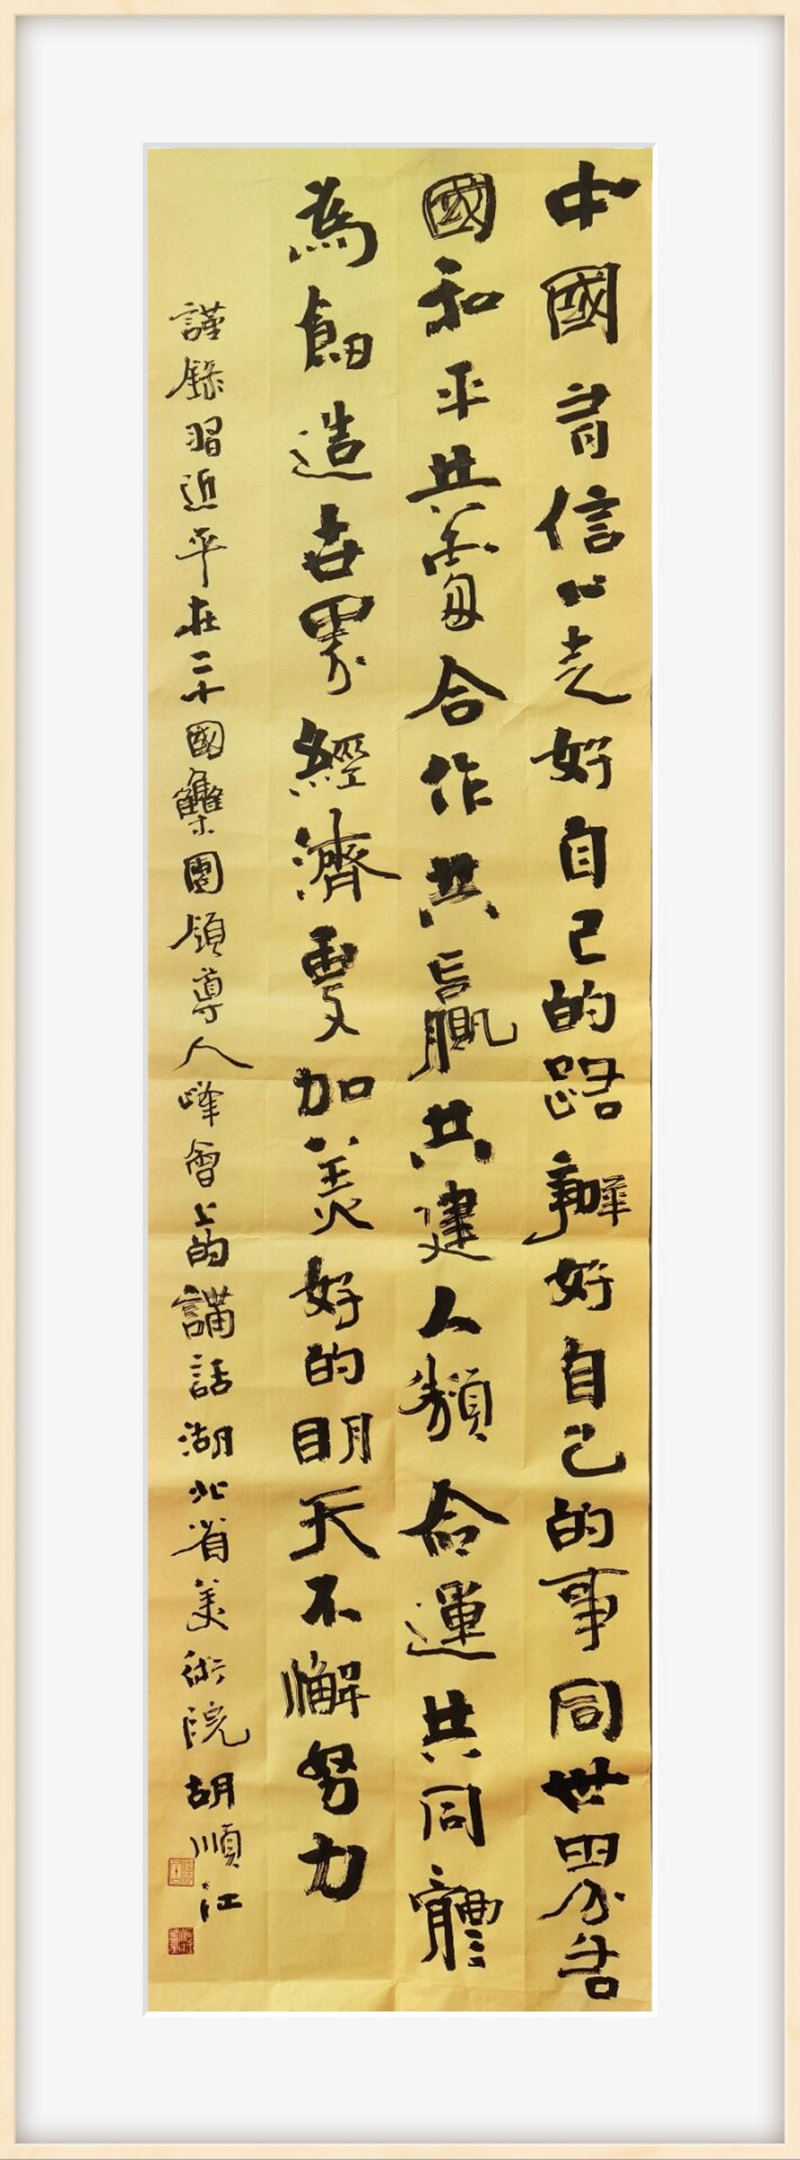 中國有信心走好自己的路辦好自己的事同世界各
國和平共處合作共贏共建人類命運共同體
為創造世界經濟更加美好的明天不懈努力
謹錄習近平在二十國集團領導人峰會上的講話湖北省美術院胡順江